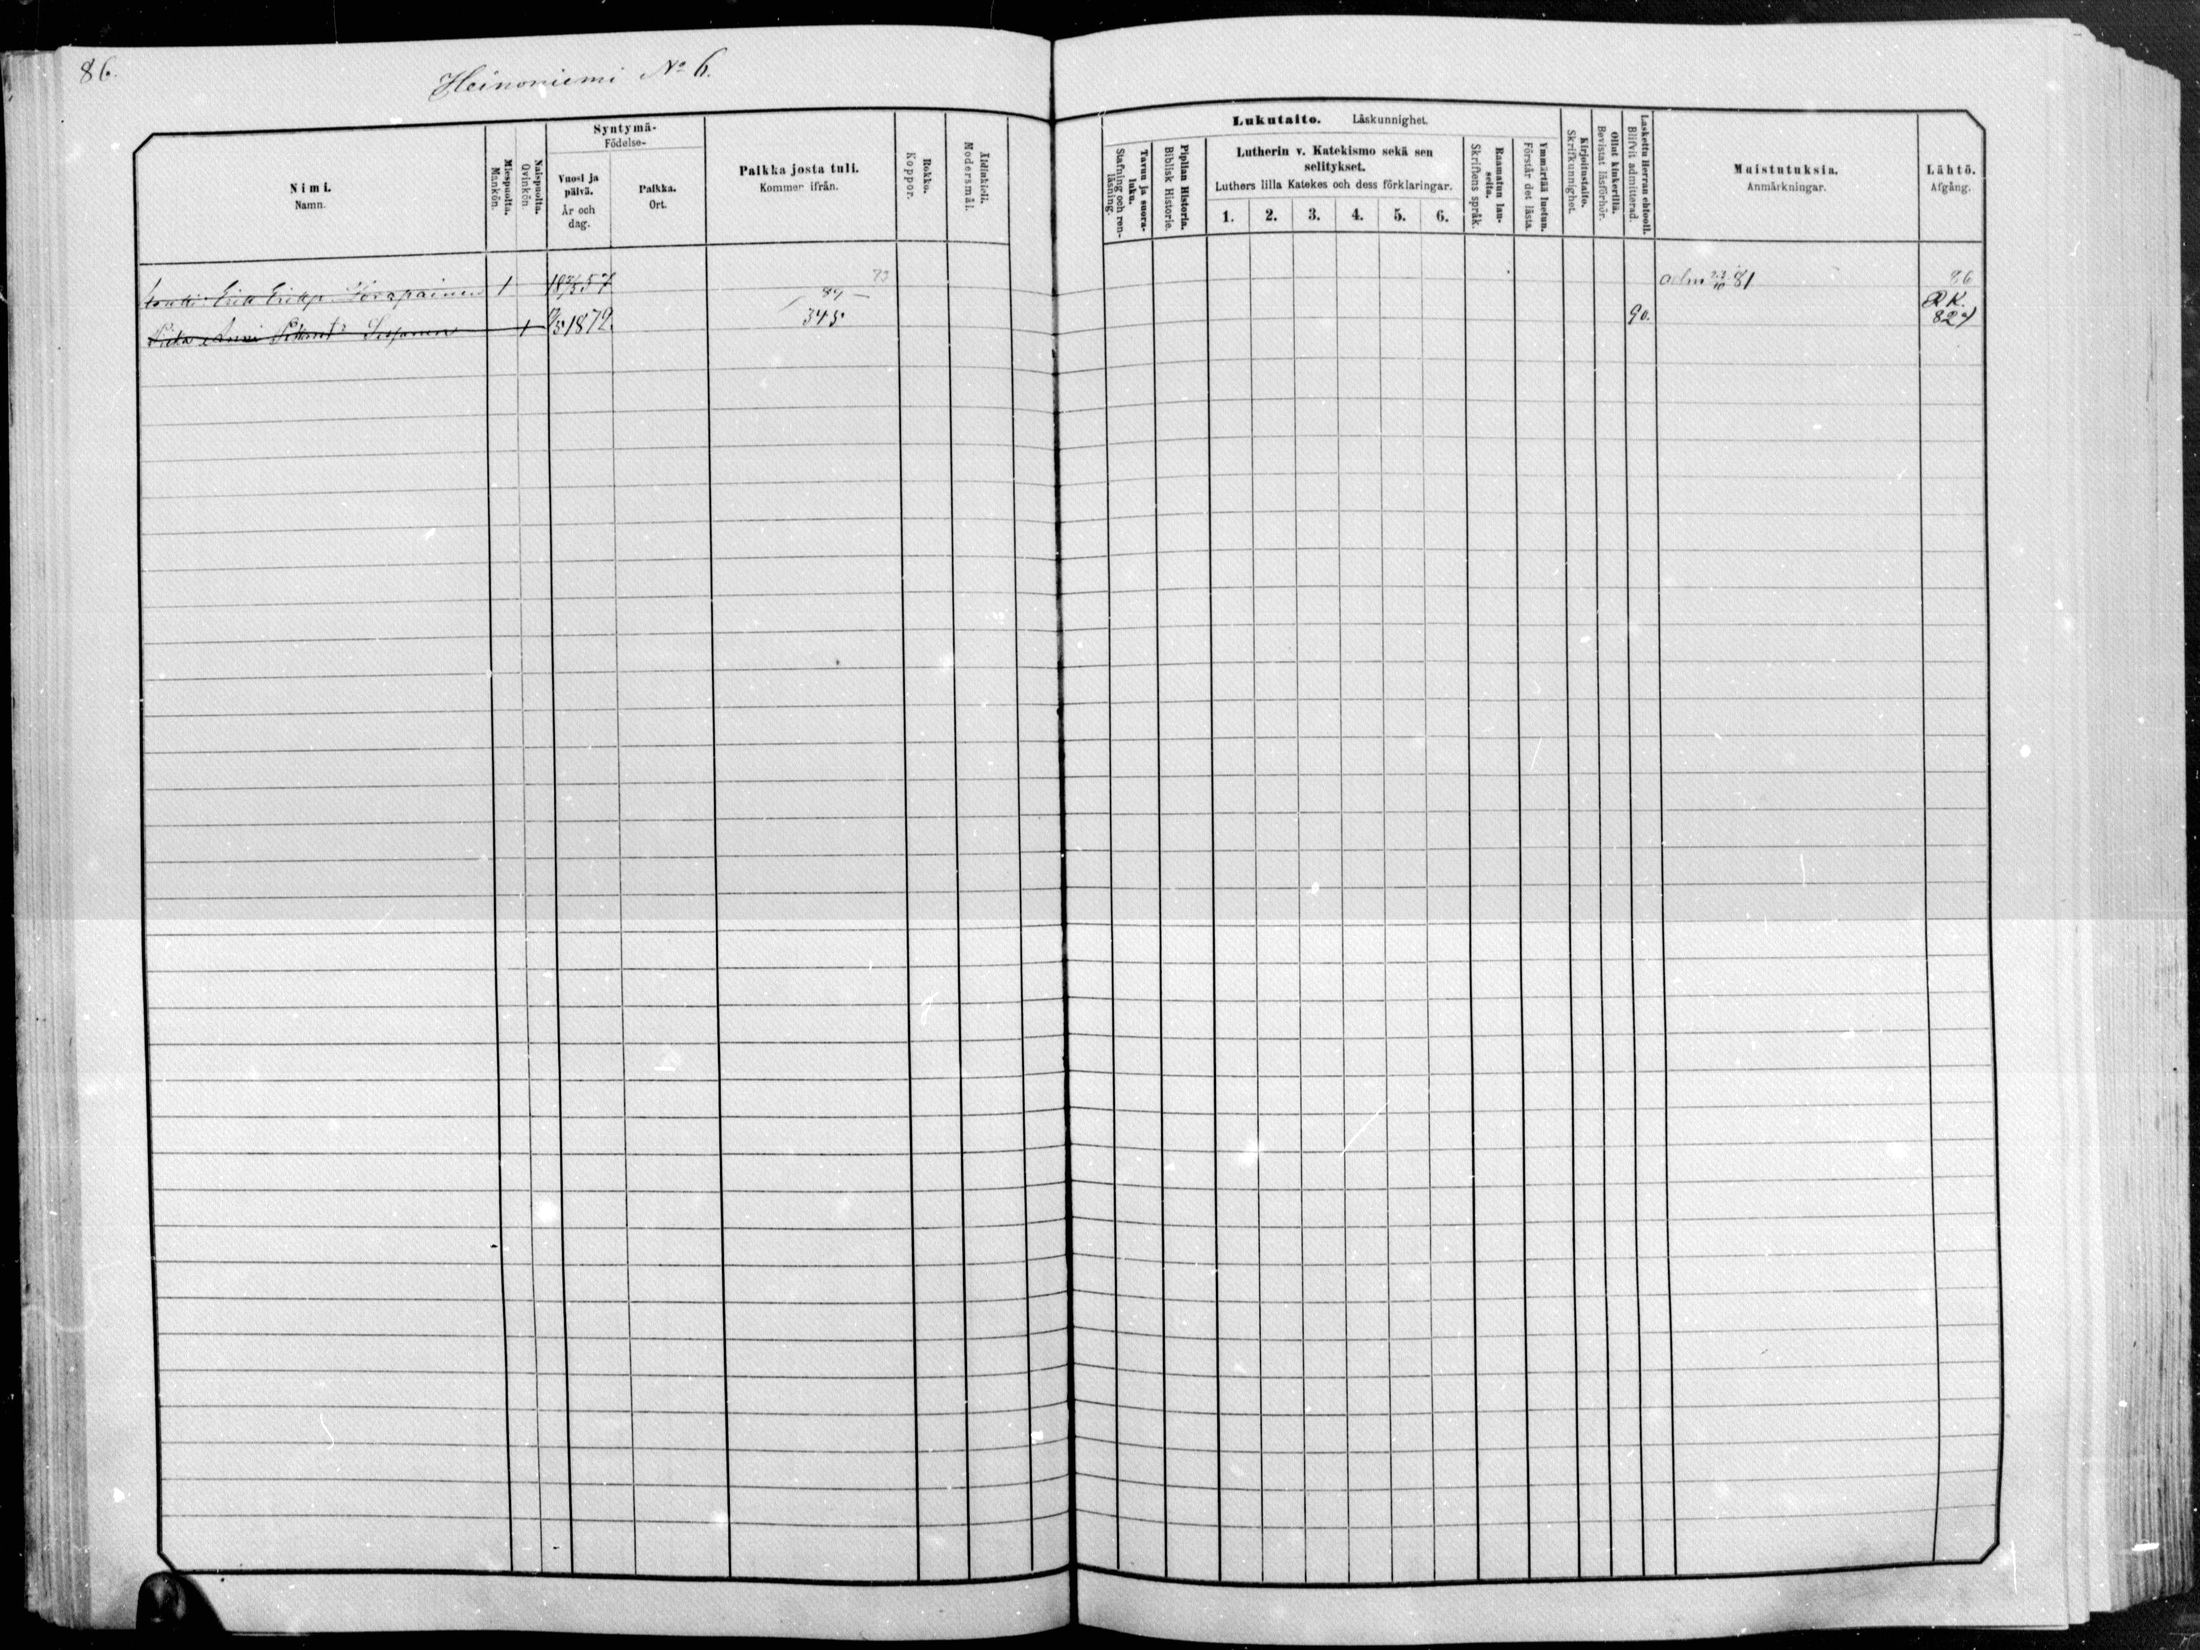 86.
Heinoniemi No 6.
Nimi.
Namn.
Miespuolta.
Mankön.
Naispuolta.
Qvinkön.
Syntymä-
Födelse-
Vuosi ja
päivä.
År och
dag.
Paikka.
Ort.
Paikka josta tuli.
Kommer ifrån.
Rokko.
Koppor.
Äidinkieli.
Modersmål.
Lukutaito. Läskunnighet.
Tavuu ja suora-
luku.
Stafning och ren-
läsning.
Piplian Historia.
Biblisk Historie.
Lutherin v. Katekismo sekä sen
selitykset.
Luthers lilla Katekes och dess förklaringar.
1. 2. 3. 4. 5. 6.
Raamatun lau-
seita.
Skriftens språk.
Ymmärtää luetun.
Förstår det lästa.
Kirjoitustaito.
Skrifkunnighet.
Ollut kinkerillä.
Bevistat läsförhör.
Laskettu Herran ehtooll.
Blifvit admitterad.
Muistutuksia.
Anmärkningar.
Lähtö.
Afgång.
Erik Eriksp. 1 57 73 adm 81 86
84
Anni 1 1872. 345 90. RK.
827